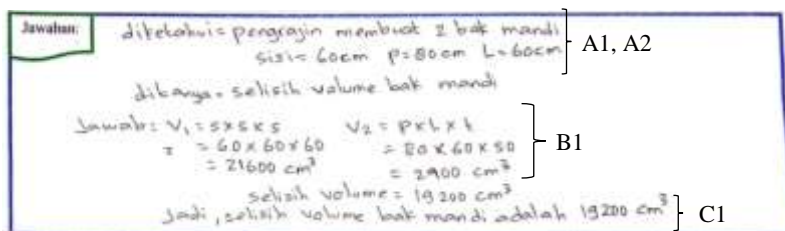 Jawaban:
diketahui = pengrajin membuat 2 bak mandi
sisi = 60cm p = 80cm L = 60cm
A1, A2
ditanya = selisih volume bak mandi
Jawab = V₁ = s x s x s V₂ = p x L x t
= = 60 x 60 x 60 = 80 x 60 x 50
= 21600 cm³ = 2400 cm³
B1
selisih volume = 19200 cm³
Jadi, selisih volume bak mandi adalah 19200 cm³
C1